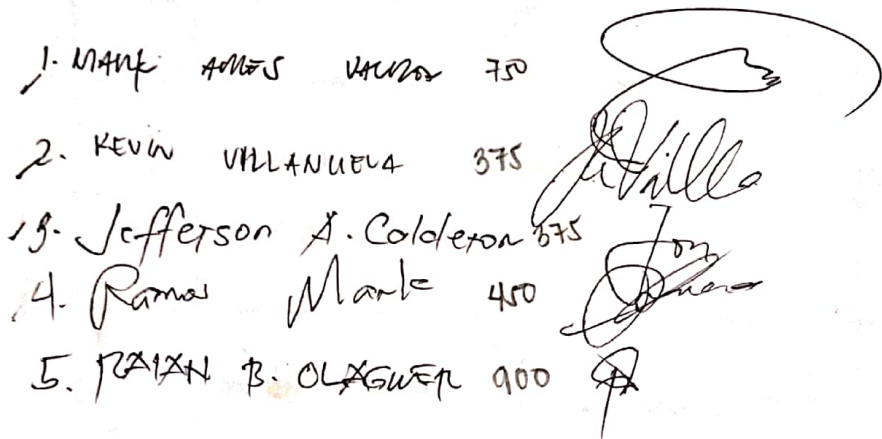 1. MARK 750
2. KEVIN VILLANUEVA 375
3. Jefferson A. Calderon 375
4. Ramos Mark 450
5. RAIAN B. OLAGUER 900